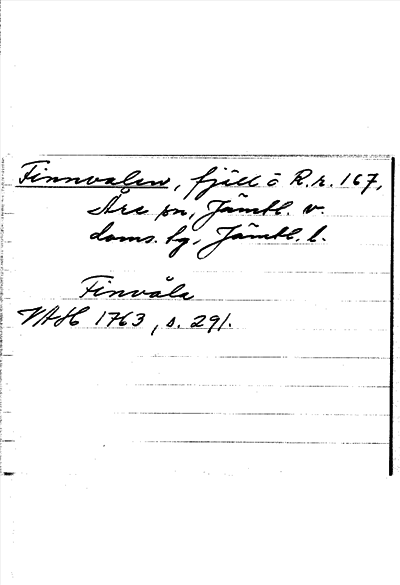 Finnvalen, fjäll ö R.r. 167,
Åre sn, Jämtl. v.
doms. tg, Jämtl. l.
Finvåla
VAH 1763, s. 291.